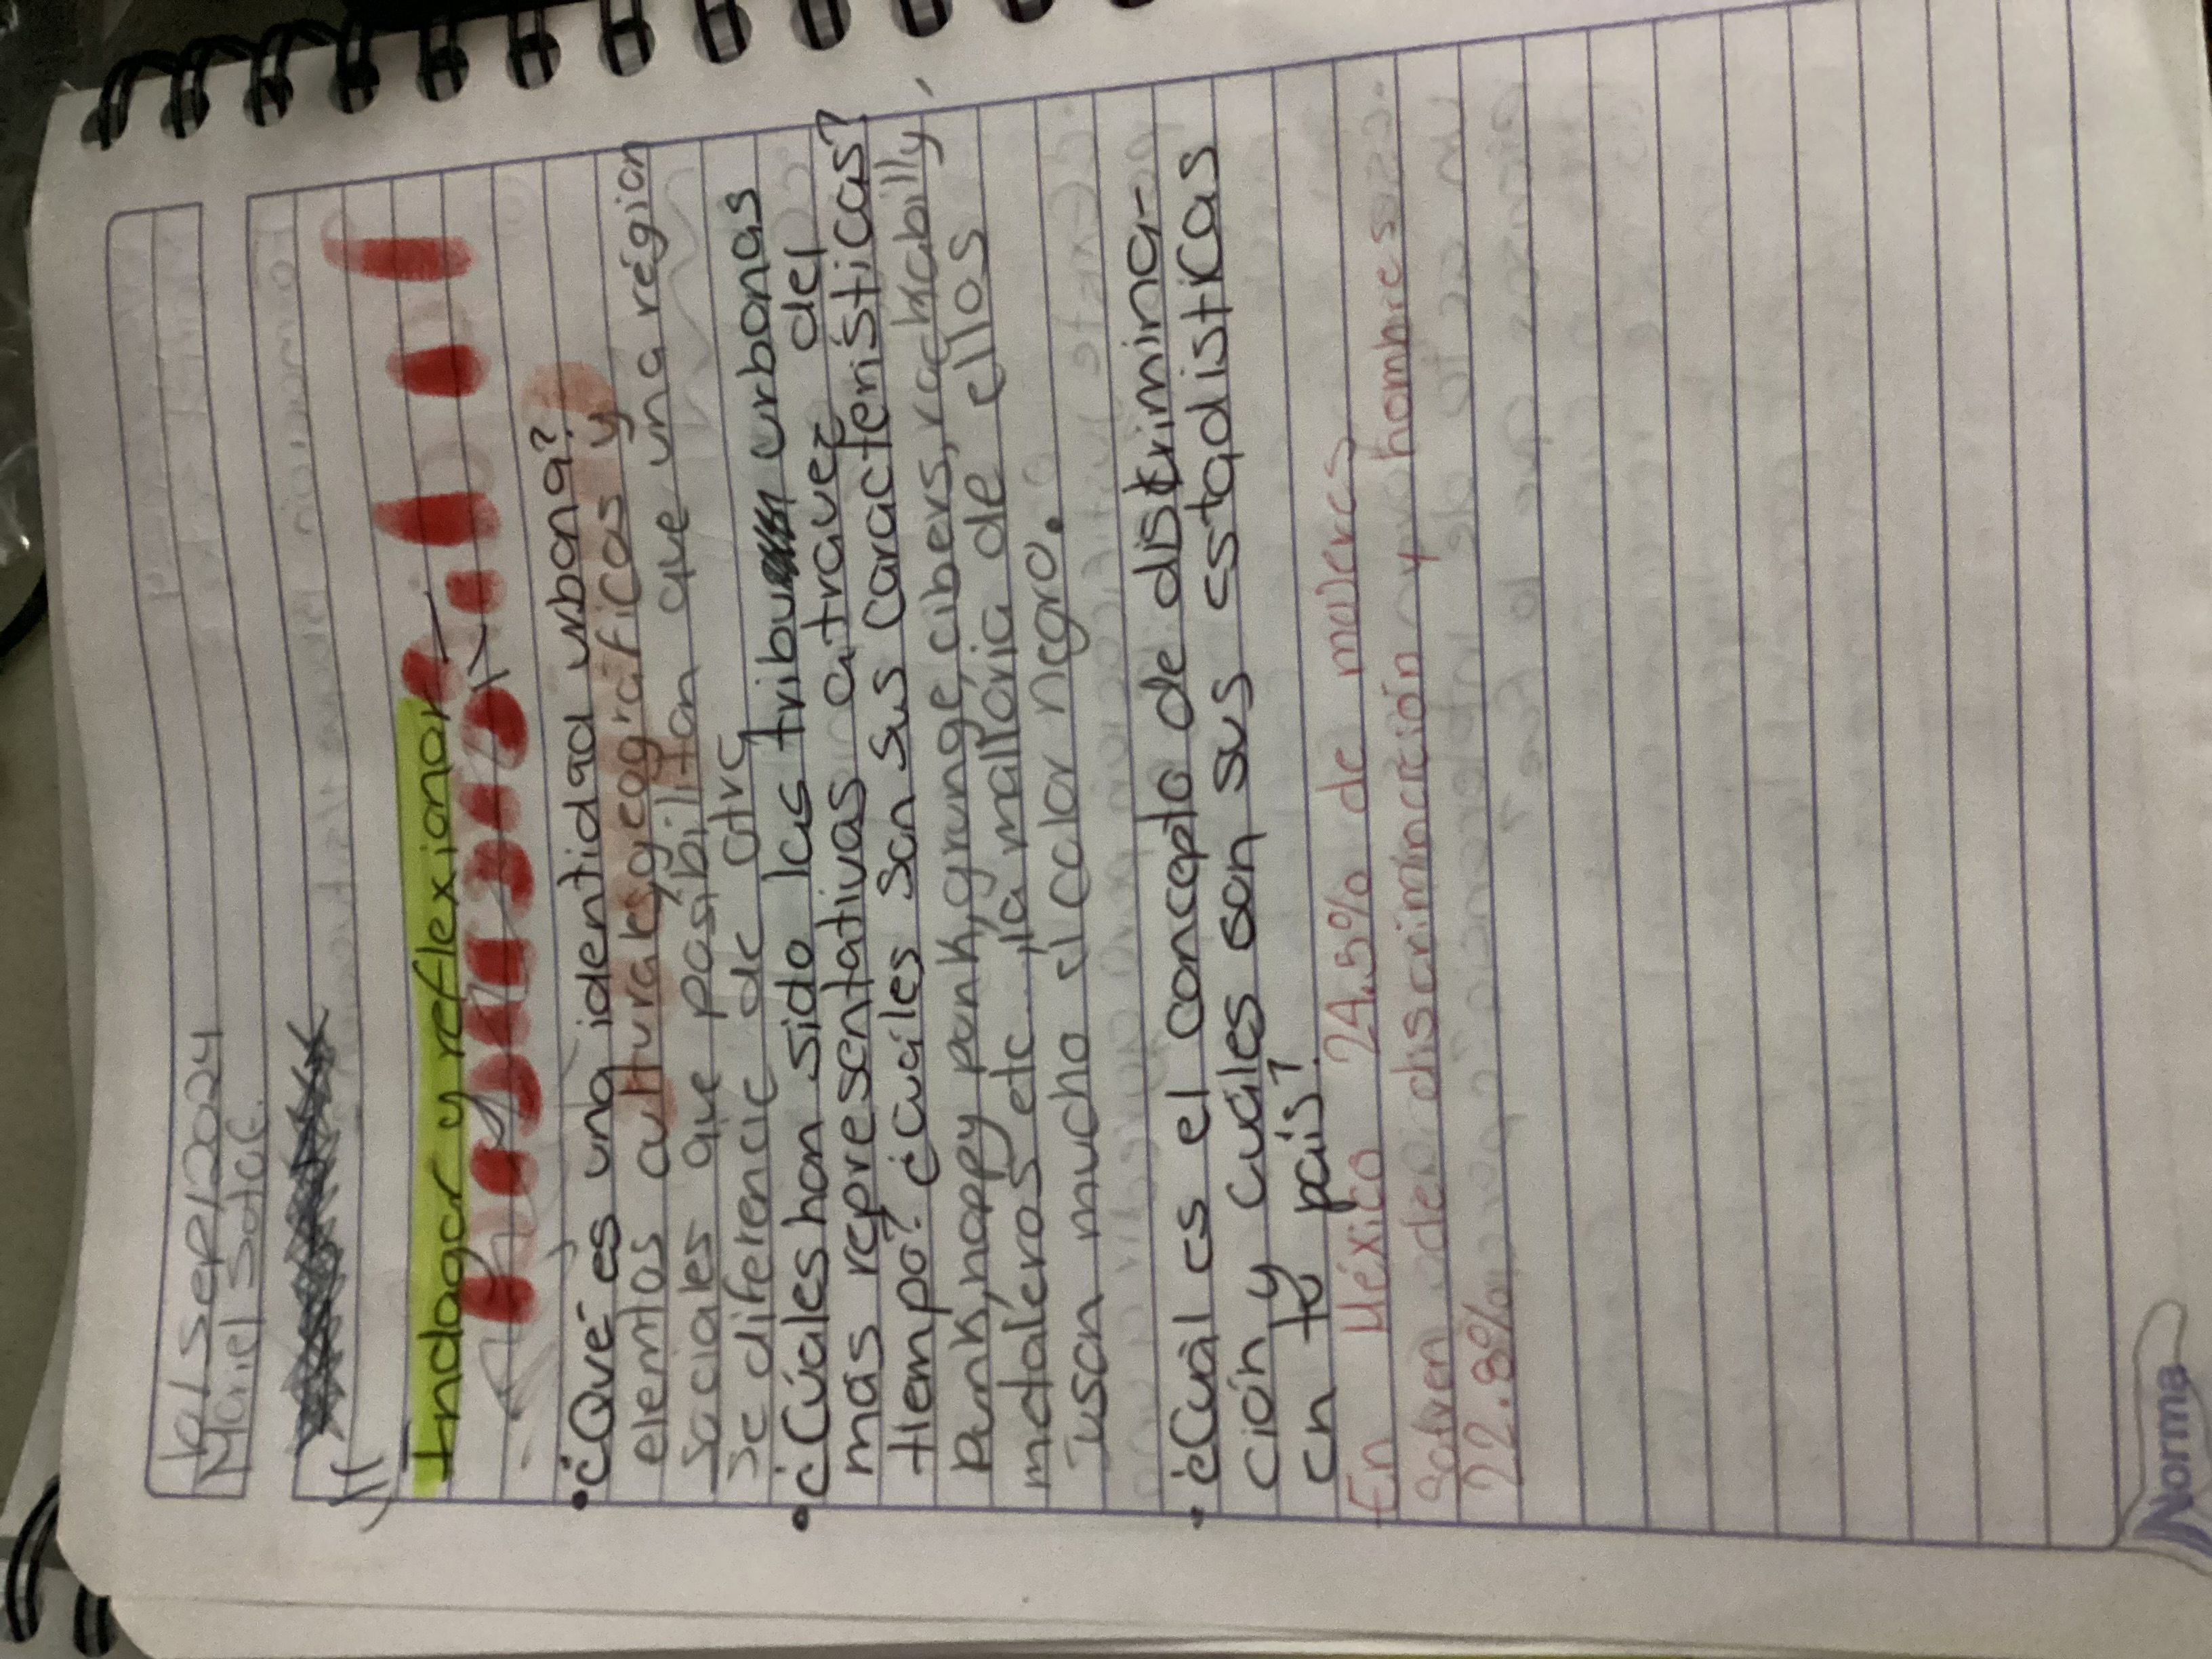 Mariel Sota G.
Indagar y reflexionar
• ¿Qué es una identidad urbana?
elemtos culturales geográficos y
sociales que posibilitan que una región
se diferencie de otra
• ¿Cúales han sido las tribu urbanas
más representativas a travez del
tiempo? ¿cuáles son sus caracteristicas?
punk, happy punk, grunge, cibers, rackabilly,
metaleros etc., la malloria de ellos
usan mucho el color negro.
• ¿Cuál es el concepto de discrimina-
ción y cuáles son sus estadisticas
en tu país?
En México 24.5% de mujeres
discriminación y hombres
22.8%
Norma